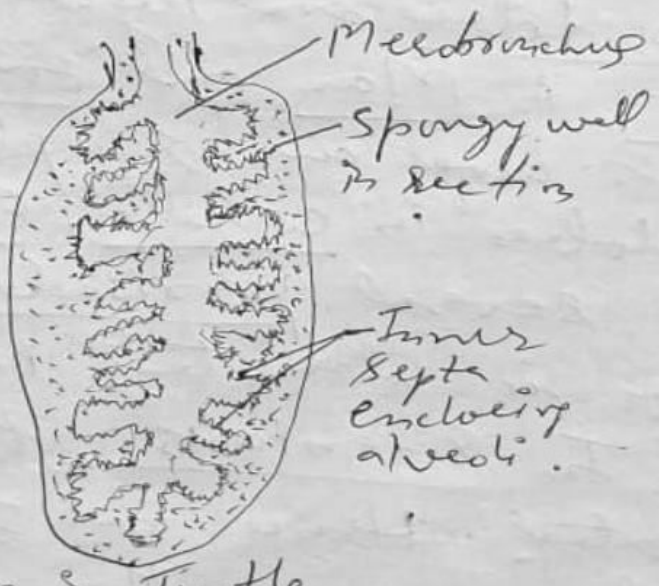 Mesobronchus
Spongy wall
in section
Inner
septa
enclosing
alveoli.
Turtle